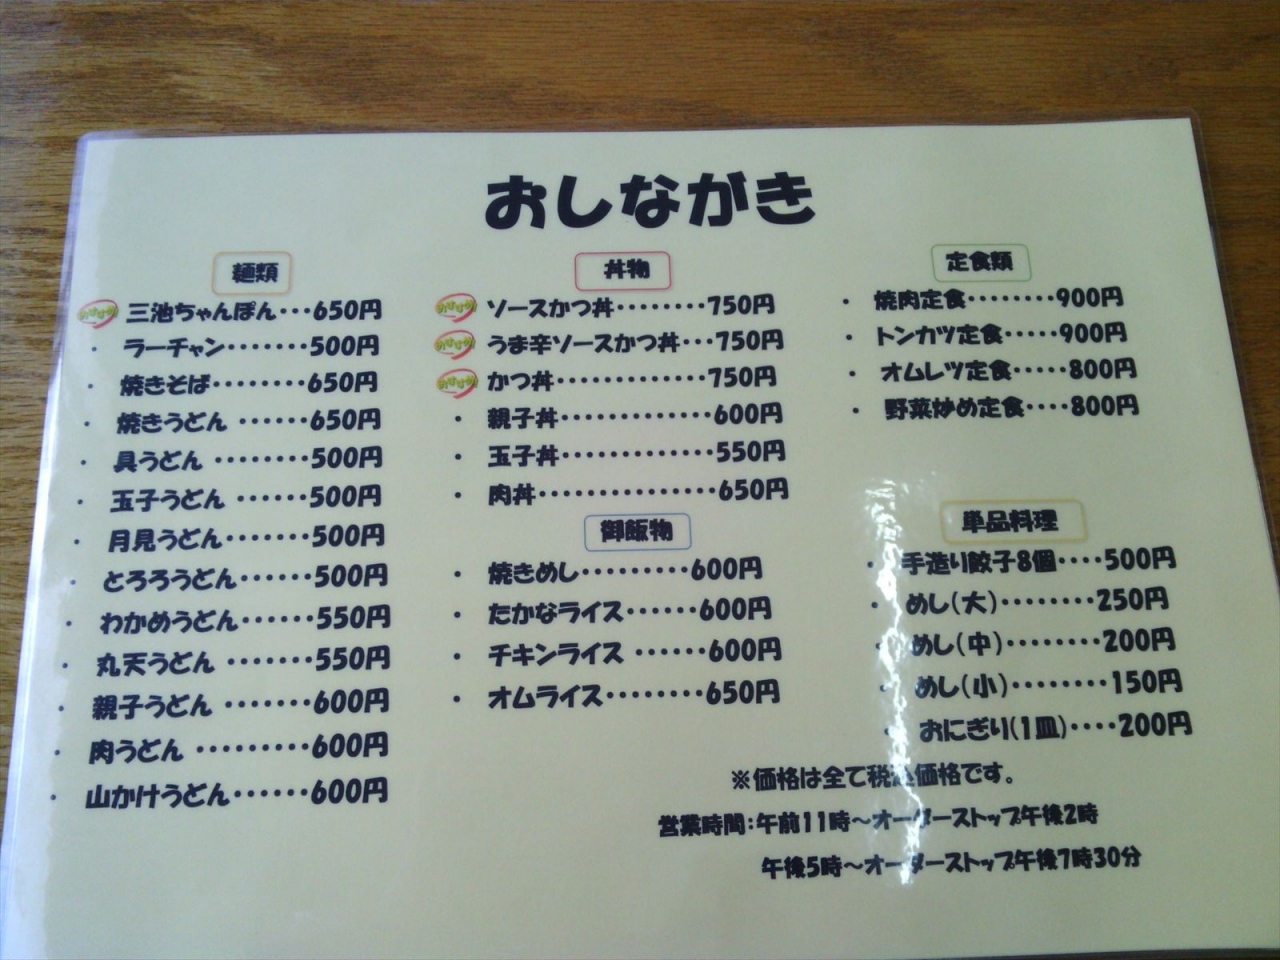 おしながき
麺類
おすすめ 三池ちゃんぽん・・・650円
・ ラーチャン・・・・・・・500円
・ 焼きそば・・・・・・・・650円
・ 焼きうどん ・・・・・・650円
・ 具うどん ・・・・・・・・500円
・ 玉子うどん ・・・・・・500円
・ 月見うどん・・・・・・・500円
・ とろろうどん・・・・・・500円
・ わかめうどん・・・・・・550円
・ 丸天うどん ・・・・・・・550円
・ 親子うどん ・・・・・・・600円
・ 肉うどん ・・・・・・・・・600円
・ 山かけうどん・・・・・・600円
丼物
おすすめ ソースかつ丼・・・・・・・・750円
おすすめ うま辛ソースかつ丼・・・750円
おすすめ かつ丼・・・・・・・・・・・・・750円
・ 親子丼・・・・・・・・・・・・・600円
・ 玉子丼・・・・・・・・・・・・・550円
・ 肉丼・・・・・・・・・・・・・・・650円
御飯物
・ 焼きめし・・・・・・・・・600円
・ たかなライス・・・・・・600円
・ チキンライス ・・・・・・600円
・ オムライス・・・・・・・・650円
定食類
・ 焼肉定食・・・・・・・・900円
・ トンカツ定食・・・・・900円
・ オムレツ定食・・・・・800円
・ 野菜炒め定食・・・・800円
単品料理
・ 手造り餃子8個・・・・500円
・ めし(大)・・・・・・・・250円
・ めし(中)・・・・・・・・200円
・ めし(小)・・・・・・・・150円
・ おにぎり(1皿)・・・・200円
※価格は全て税込価格です。
営業時間:午前11時～オーダーストップ午後2時
午後5時～オーダーストップ午後7時30分